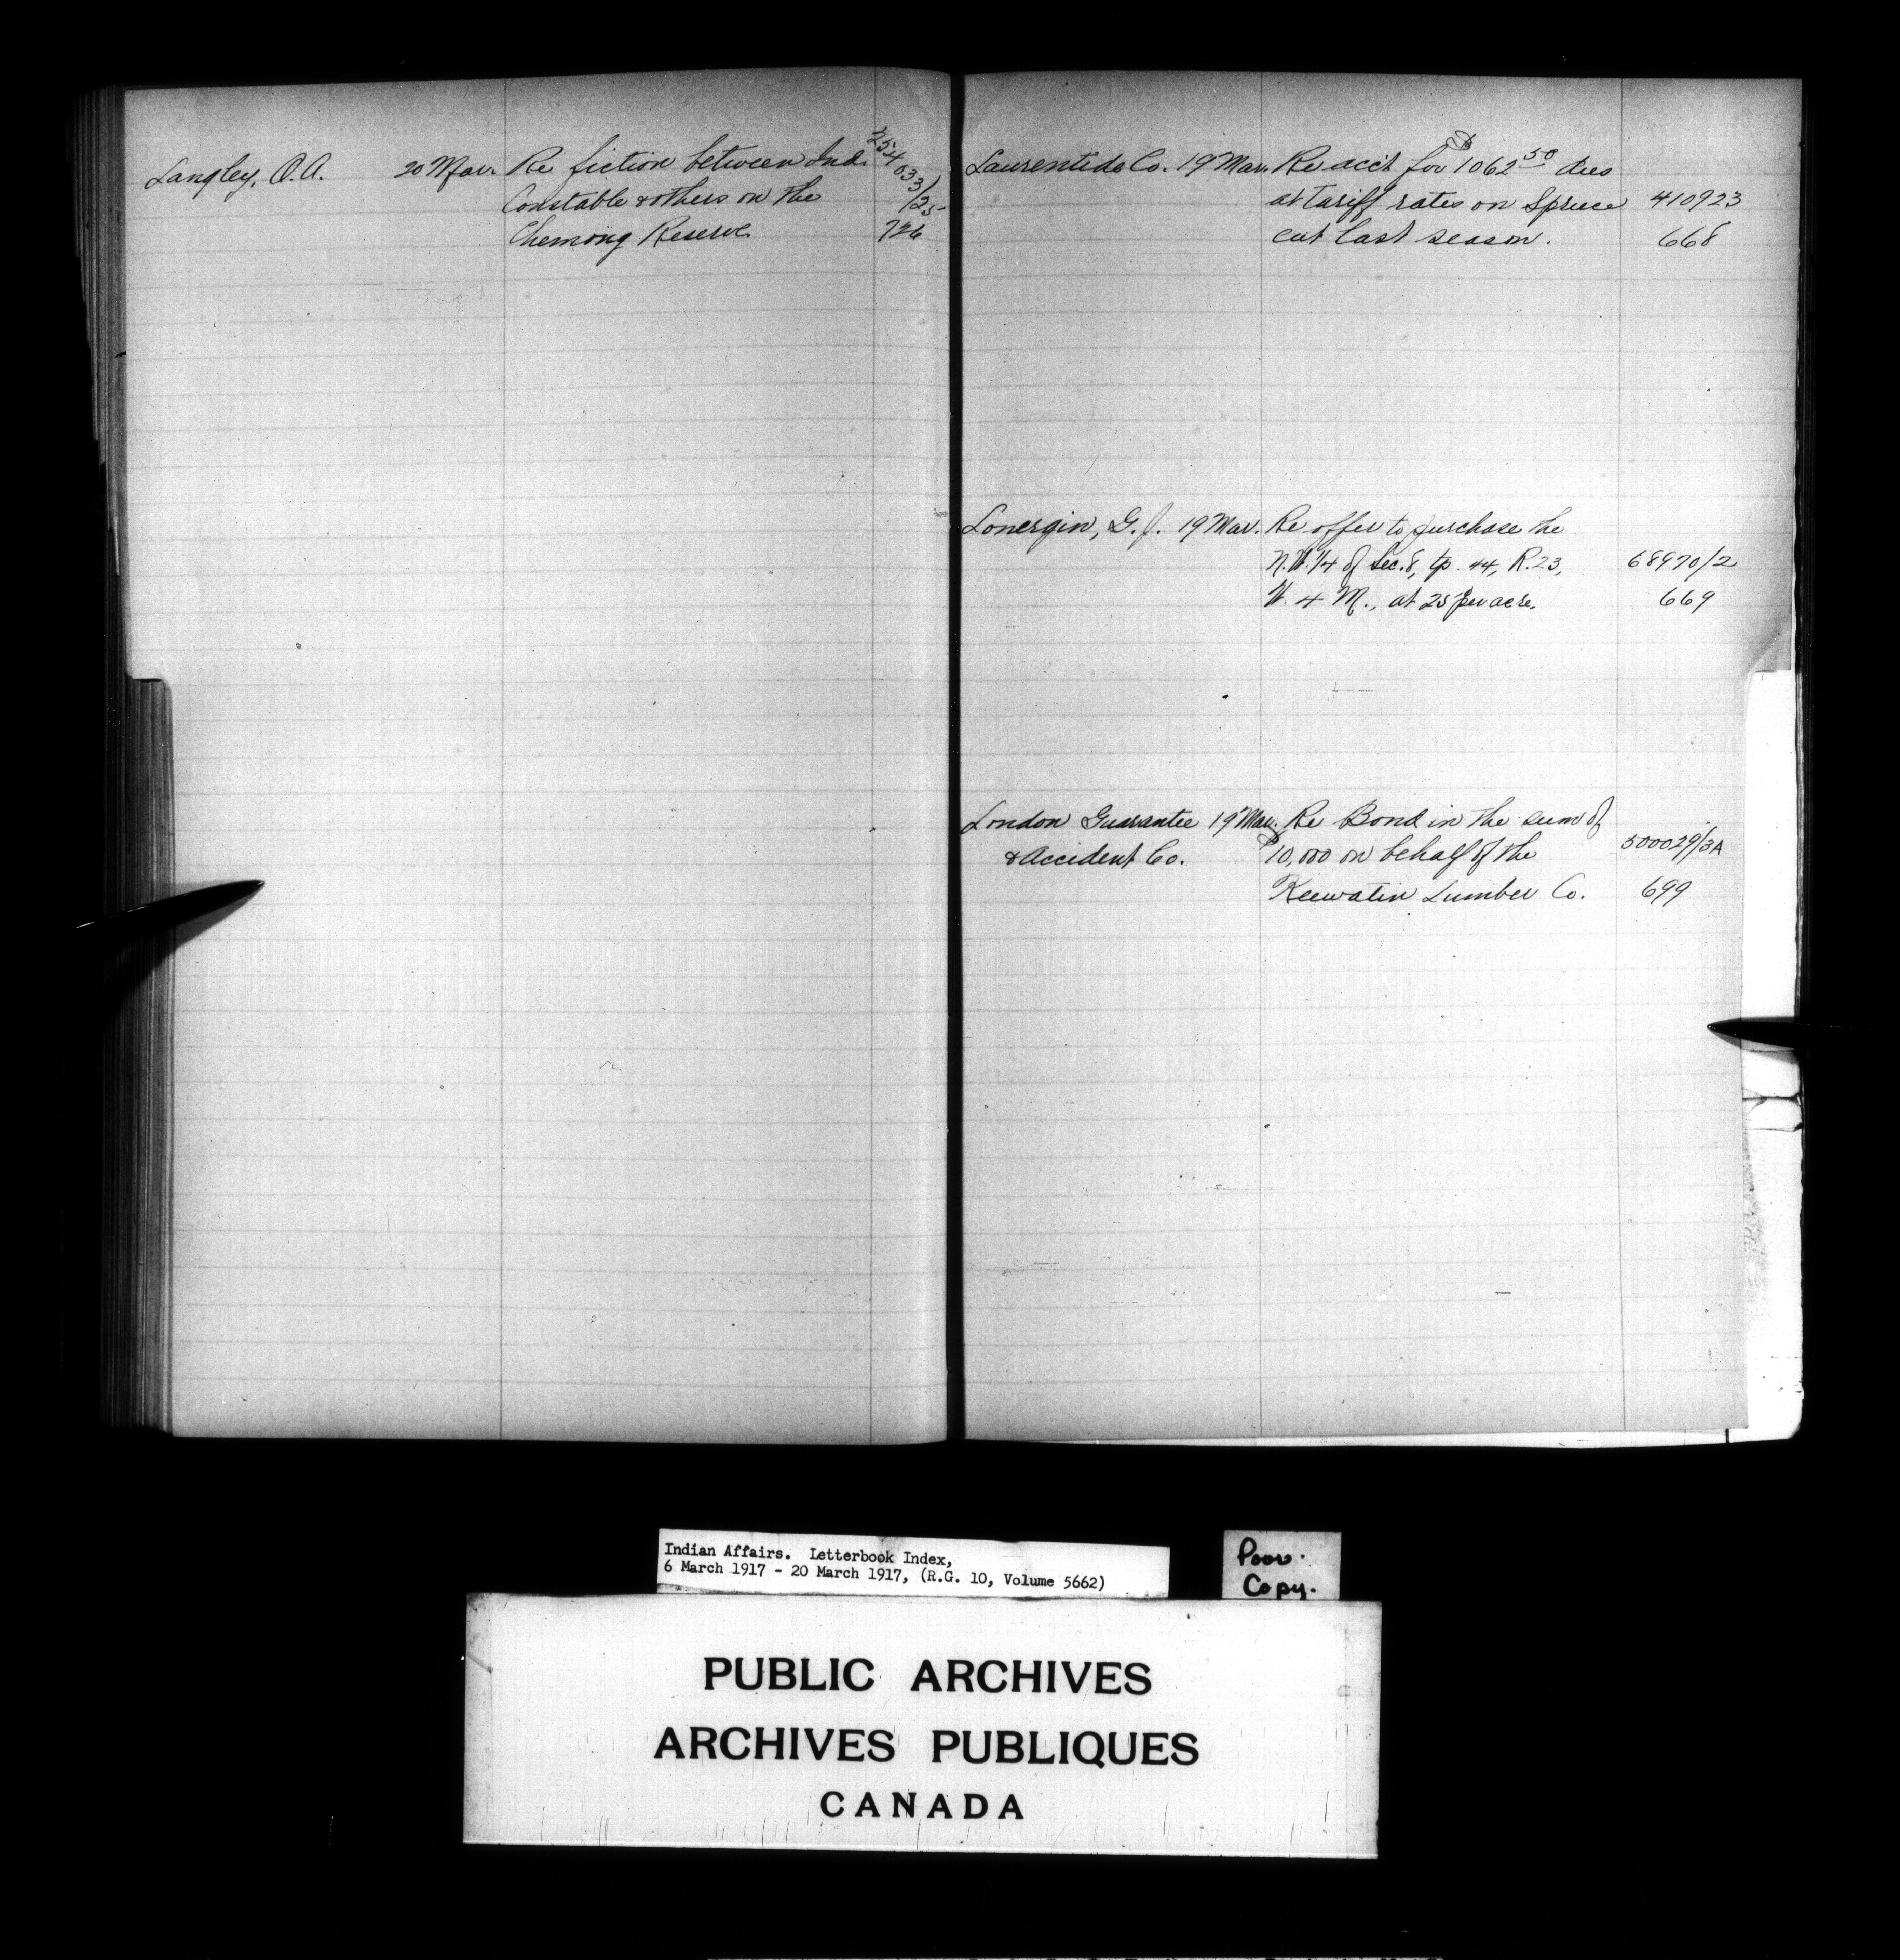 Langley, O.A. 20 Mar. Re fiction between Ind. 254033/25
Constable & others on the
Chemong Reserve 726
Laurentide Co. 19 Mar. Re acct for $1062.50 dues
at tariff rates on Spruce 410923
cut last season. 668
Lonergin, G. J. 19 Mar. Re offer to purchase the
N.W. 1/4 of Sec. 8, tp. 44, R. 23, 68970/2
W. 4 M., at 25 per acre. 669
London Guarantee 19 Mar. Re Bond in the sum of
& Accident Co. $10,000 on behalf of the 500029/3A
Keewatin Lumber Co. 699
Indian Affairs. Letterbook Index,
6 March 1917 - 20 March 1917, (R.G. 10, Volume 5662)
Poor.
Copy.
PUBLIC ARCHIVES
ARCHIVES PUBLIQUES
CANADA